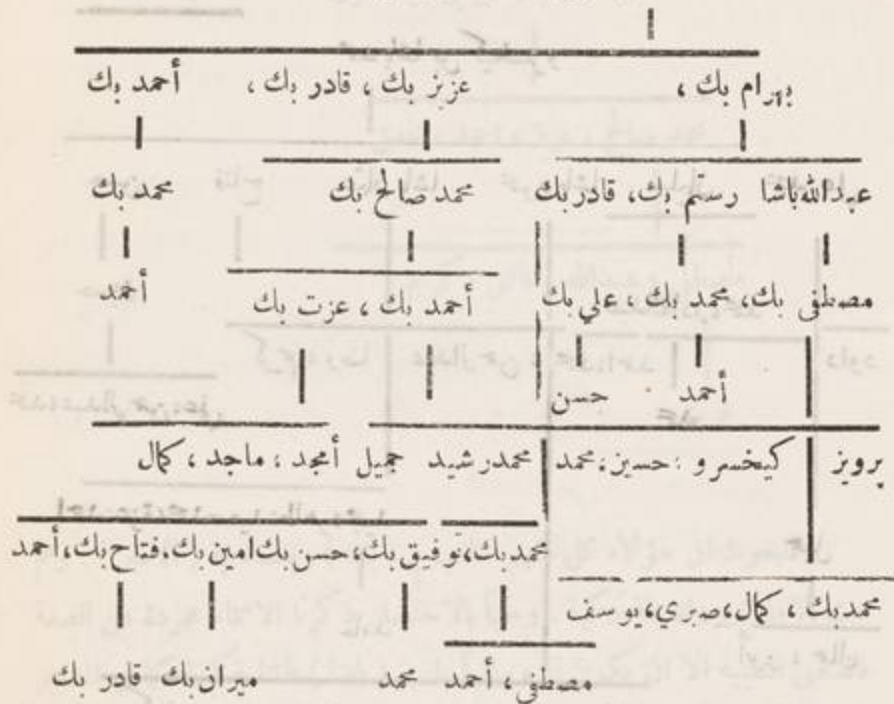 بهرام بك ، عزيز بك ، قادر بك ، أحمد بك
عبدالله باشا رستم بك، قادر بك محمد صالح بك محمد بك
مصطفى بك، محمد بك ، علي بك أحمد بك ، عزت بك أحمد
أحمد حسن
برويز كيخسرو ؛ حسين ؛ محمد محمد رشيد جميل أمجد ؛ ماجد ، كمال
محمد بك، توفيق بك، حسن بك امين بك، فتاح بك، أحمد
محمد بك ، كمال، صبري، يوسف
مصطفى ، أحمد محمد ميران بك قادر بك